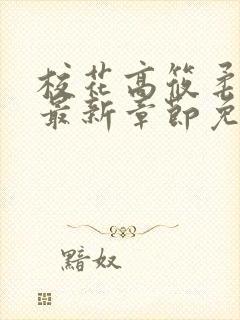 校花高筱柔
最新章节免
黯奴